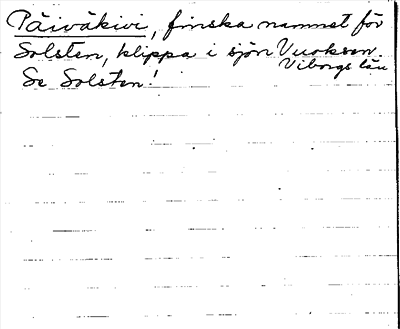 Päiväkivi, finska namnet för
Solsten, klippa i sjön Vuoksen.
Viborgs län
Se Solsten!